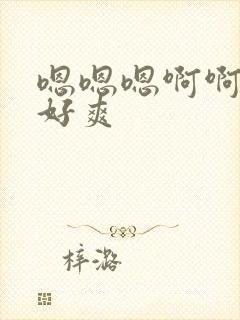 嗯嗯嗯啊啊
好爽
梓潞